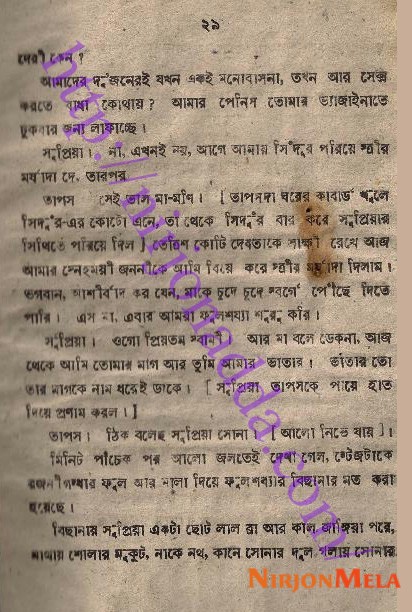 ২৯
দেরী কেন ?
আমাদের দু'জনেরই যখন একই মনোবাসনা, তখন আর সেক্স
করতে বাধা কোথায় ? আমার পেনিস তোমার ভ্যাজাইনাতে
ঢুকবার জন্য লাফাচ্ছে।
সুপ্রিয়া। না, এখনই নয়, আগে আমায় সিঁদুর পরিয়ে স্ত্রীর
মর্যাদা দে, তারপর
তাপস সেই ভাল মা-মণি। [ তাপসদা ঘরের কাবার্ড খুলে
সিঁদুর-এর কৌটো এনে তা থেকে সিঁদুর বার করে সুপ্রিয়ার
সিঁথিতে পরিয়ে দিল ] তেত্রিশ কোটি দেবতাকে সাক্ষী রেখে আজ
আমার স্নেহময়ী জননীকে আমি বিয়ে করে স্ত্রীর মর্যাদা দিলাম।
ভগবান, আশীর্বাদ কর যেন, মাকে চুদে চুদে স্বর্গে পৌঁছে দিতে
পারি। এস মা, এবার আমরা ফুলশয্যা শুরু করি।
সুপ্রিয়া। ওগো প্রিয়তম স্বামী। আর মা বলে ডেকনা, আজ
থেকে আমি তোমার মাগ আর তুমি আমার ভাতার। ভাতার তো
তার মাগকে নাম ধরেই ডাকে। [ সুপ্রিয়া তাপসকে পায়ে হাত
দিয়ে প্রণাম করল। ]
তাপস। ঠিক বলেছ সুপ্রিয়া সোনা। [ আলো নিভে যায় ]।
মিনিট পাঁচেক পর আলো জ্বলতেই দেখা গেল, স্টেজটাকে
রজনীগন্ধার ফুল আর মালা দিয়ে ফুলশয্যার বিছানার মত করা
হয়েছে।
বিছানায় সুপ্রিয়া একটা ছোট লাল ব্রা আর কাল জাঙ্গিয়া পরে,
মাথায় শোলার মুকুট, নাকে নথ, কানে সোনার দুল গলায় সোনার
NIRJONMELA